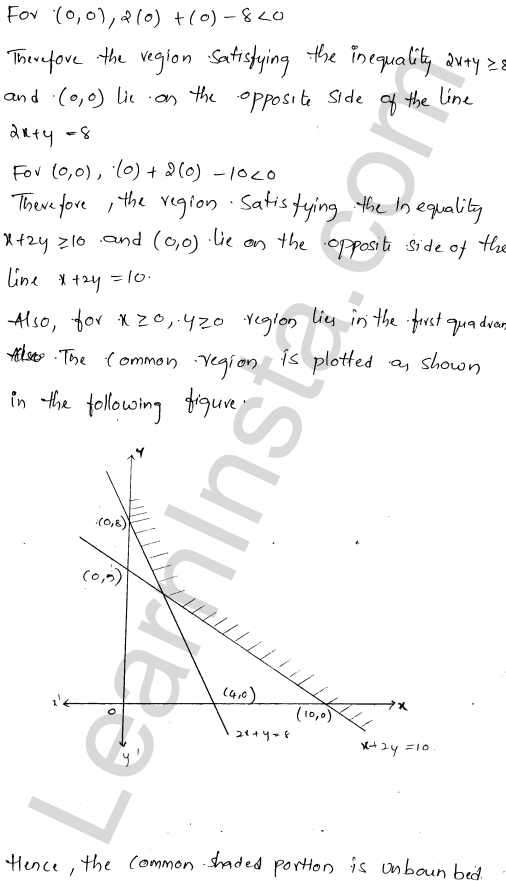 For (0,0), 2(0) + (0) - 8 < 0
Therefore the region satisfying the inequality 2x+y ≥ 8
and (0,0) lie on the opposite side of the line
2x+y = 8
For (0,0), (0) + 2(0) - 10 < 0
Therefore, the region satisfying the Inequality
x+2y ≥ 10 and (0,0) lie on the opposite side of the
line x+2y = 10.
Also, for x ≥ 0, y ≥ 0 region lies in the first quadran
Also The common region is plotted as shown
in the following figure.
Y
(0,8)
(0,5)
x'
O
(4,0)
(10,0)
x
2x+y=8
x+2y=10.
y'
Hence, the common shaded portion is unbounbed.
LearnInsta.com